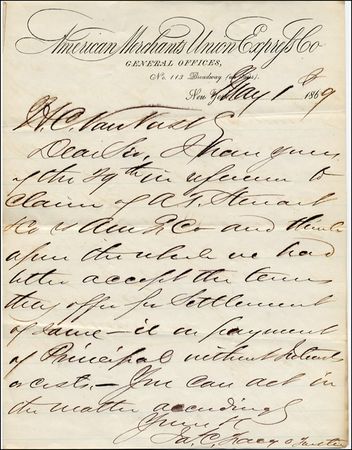 American Merchants Union Express Co
GENERAL OFFICES,
No. 113 Broadway
New York May 1st 1869
H. C. Van Vorst
Dear Sir, I have yours
of the 29th in reference to
claim of A. T. Stewart
& Co vs Am Ex Co and think
upon the whole we had
better accept the terms
they offer for settlement
of same – ie on payment
of Principal without Interest
or costs. – You can act in
the matter accordingly
Yours &c
Jas. C. Fargo